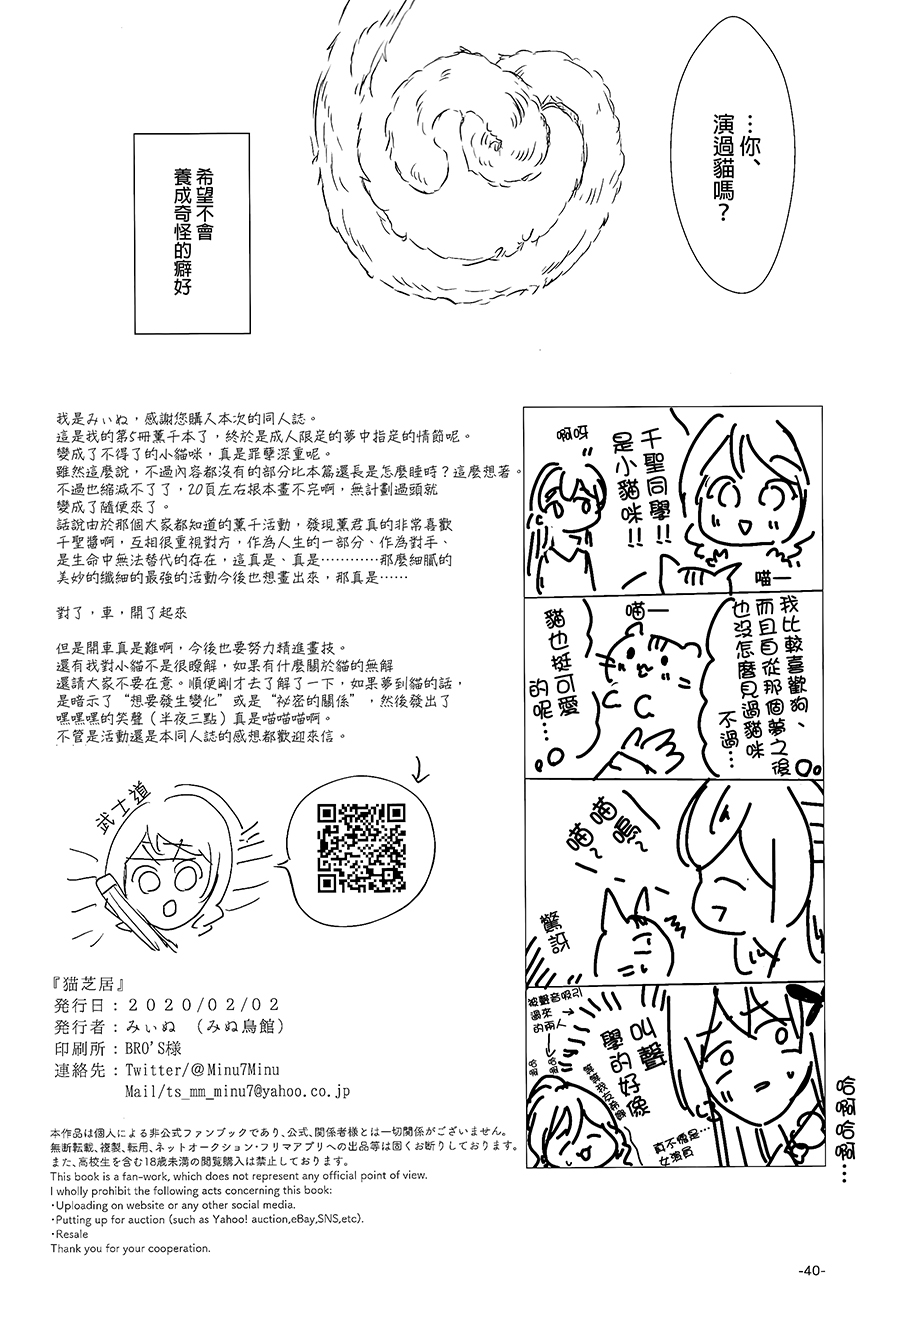 …你、
演過貓嗎？
希望不會
養成奇怪的癖好
我是みぃぬ，感謝您購入本次的同人誌。
這是我的第5冊薰千本了，終於是成人限定的夢中指定的情節呢。
變成了不得了的小貓咪，真是罪孽深重呢。
雖然這麼說，不過內容都沒有的部分比本篇還長是怎麼睡時？這麼想著。
不過也縮減不了了，20頁左右根本畫不完啊，無計劃過頭就
變成了隨便來了。
話說由於那個大家都知道的薰千活動，發現薰君真的非常喜歡
千聖醬啊，互相很重視對方，作為人生的一部分、作為對手、
是生命中無法替代的存在，這真是、真是…………那麼細膩的
美妙的纖細的最強的活動今後也想畫出來，那真是……
對了，車，開了起來
但是開車真是難啊，今後也要努力精進畫技。
還有我對小貓不是很瞭解，如果有什麼關於貓的無解
還請大家不要在意。順便剛才去了解了一下，如果夢到貓的話，
是暗示了“想要發生變化”或是“祕密的關係”，然後發出了
嘿嘿嘿的笑聲（半夜三點）真是喵喵喵啊。
不管是活動還是本同人誌的感想都歡迎來信。
武士道
『猫芝居』
発行日：２０２０/０２/０２
発行者：みぃぬ （みぬ鳥館）
印刷所：BRO'S様
連絡先：Twitter/＠Minu7Minu
Mail/ts_mm_minu7@yahoo.co.jp
本作品は個人による非公式ファンブックであり、公式、関係者様とは一切関係がございません。
無断転載、複製、転用、ネットオークション・フリマアプリへの出品等は固くお断りしております。
また、高校生を含む18歳未満の閲覧購入は禁止しております。
This book is a fan-work, which does not represent any official point of view.
I wholly prohibit the following acts concerning this book:
・Uploading on website or any other social media.
・Putting up for auction (such as Yahoo! auction,eBay,SNS,etc).
・Resale
Thank you for your cooperation.
千聖同學!!
是小貓咪!!
啊呀
喵—
我比較喜歡狗、
而且自從那個夢之後
也沒怎麼見過貓咪
不過…
喵—
貓也挺可愛
的呢…
喵嗚~
喵~
驚訝
叫聲
學的好像
被聲音吸引
過來
的兩人
哈啊
哈啊
真不愧是…
女演員
哈啊哈啊…
-40-